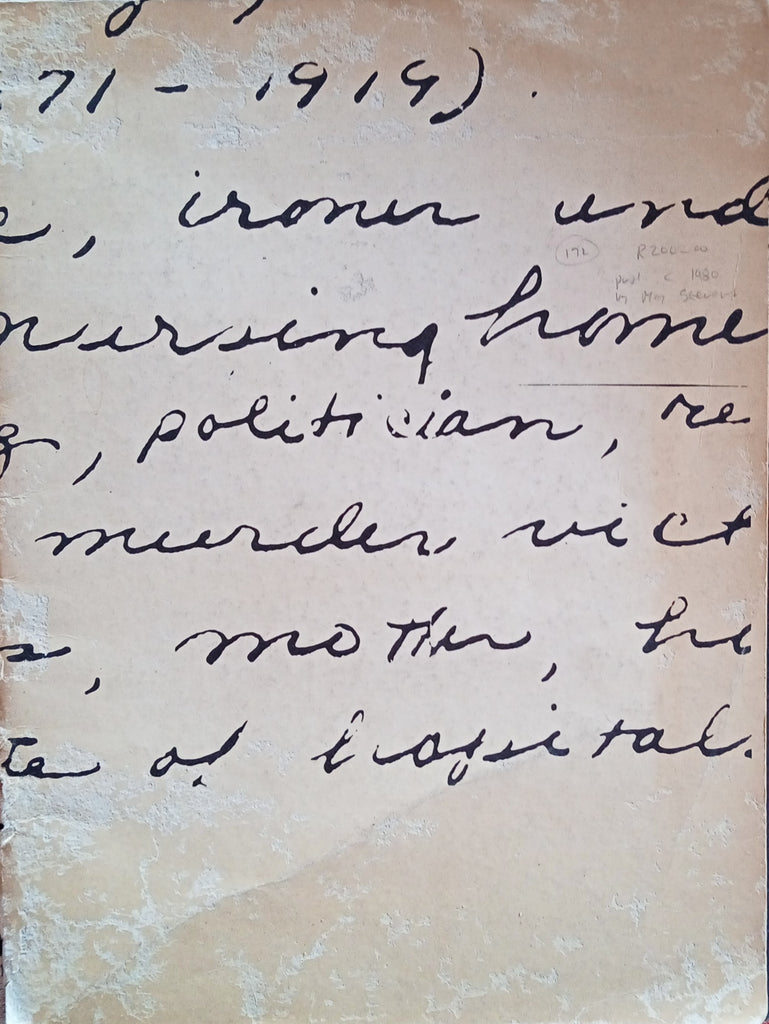 71 - 1919).
, ironer and
nursing home
, politician, re
murder vict
s, mother, ho
te of hospital.
172 R200-00
publ c 1980
by May Stevens